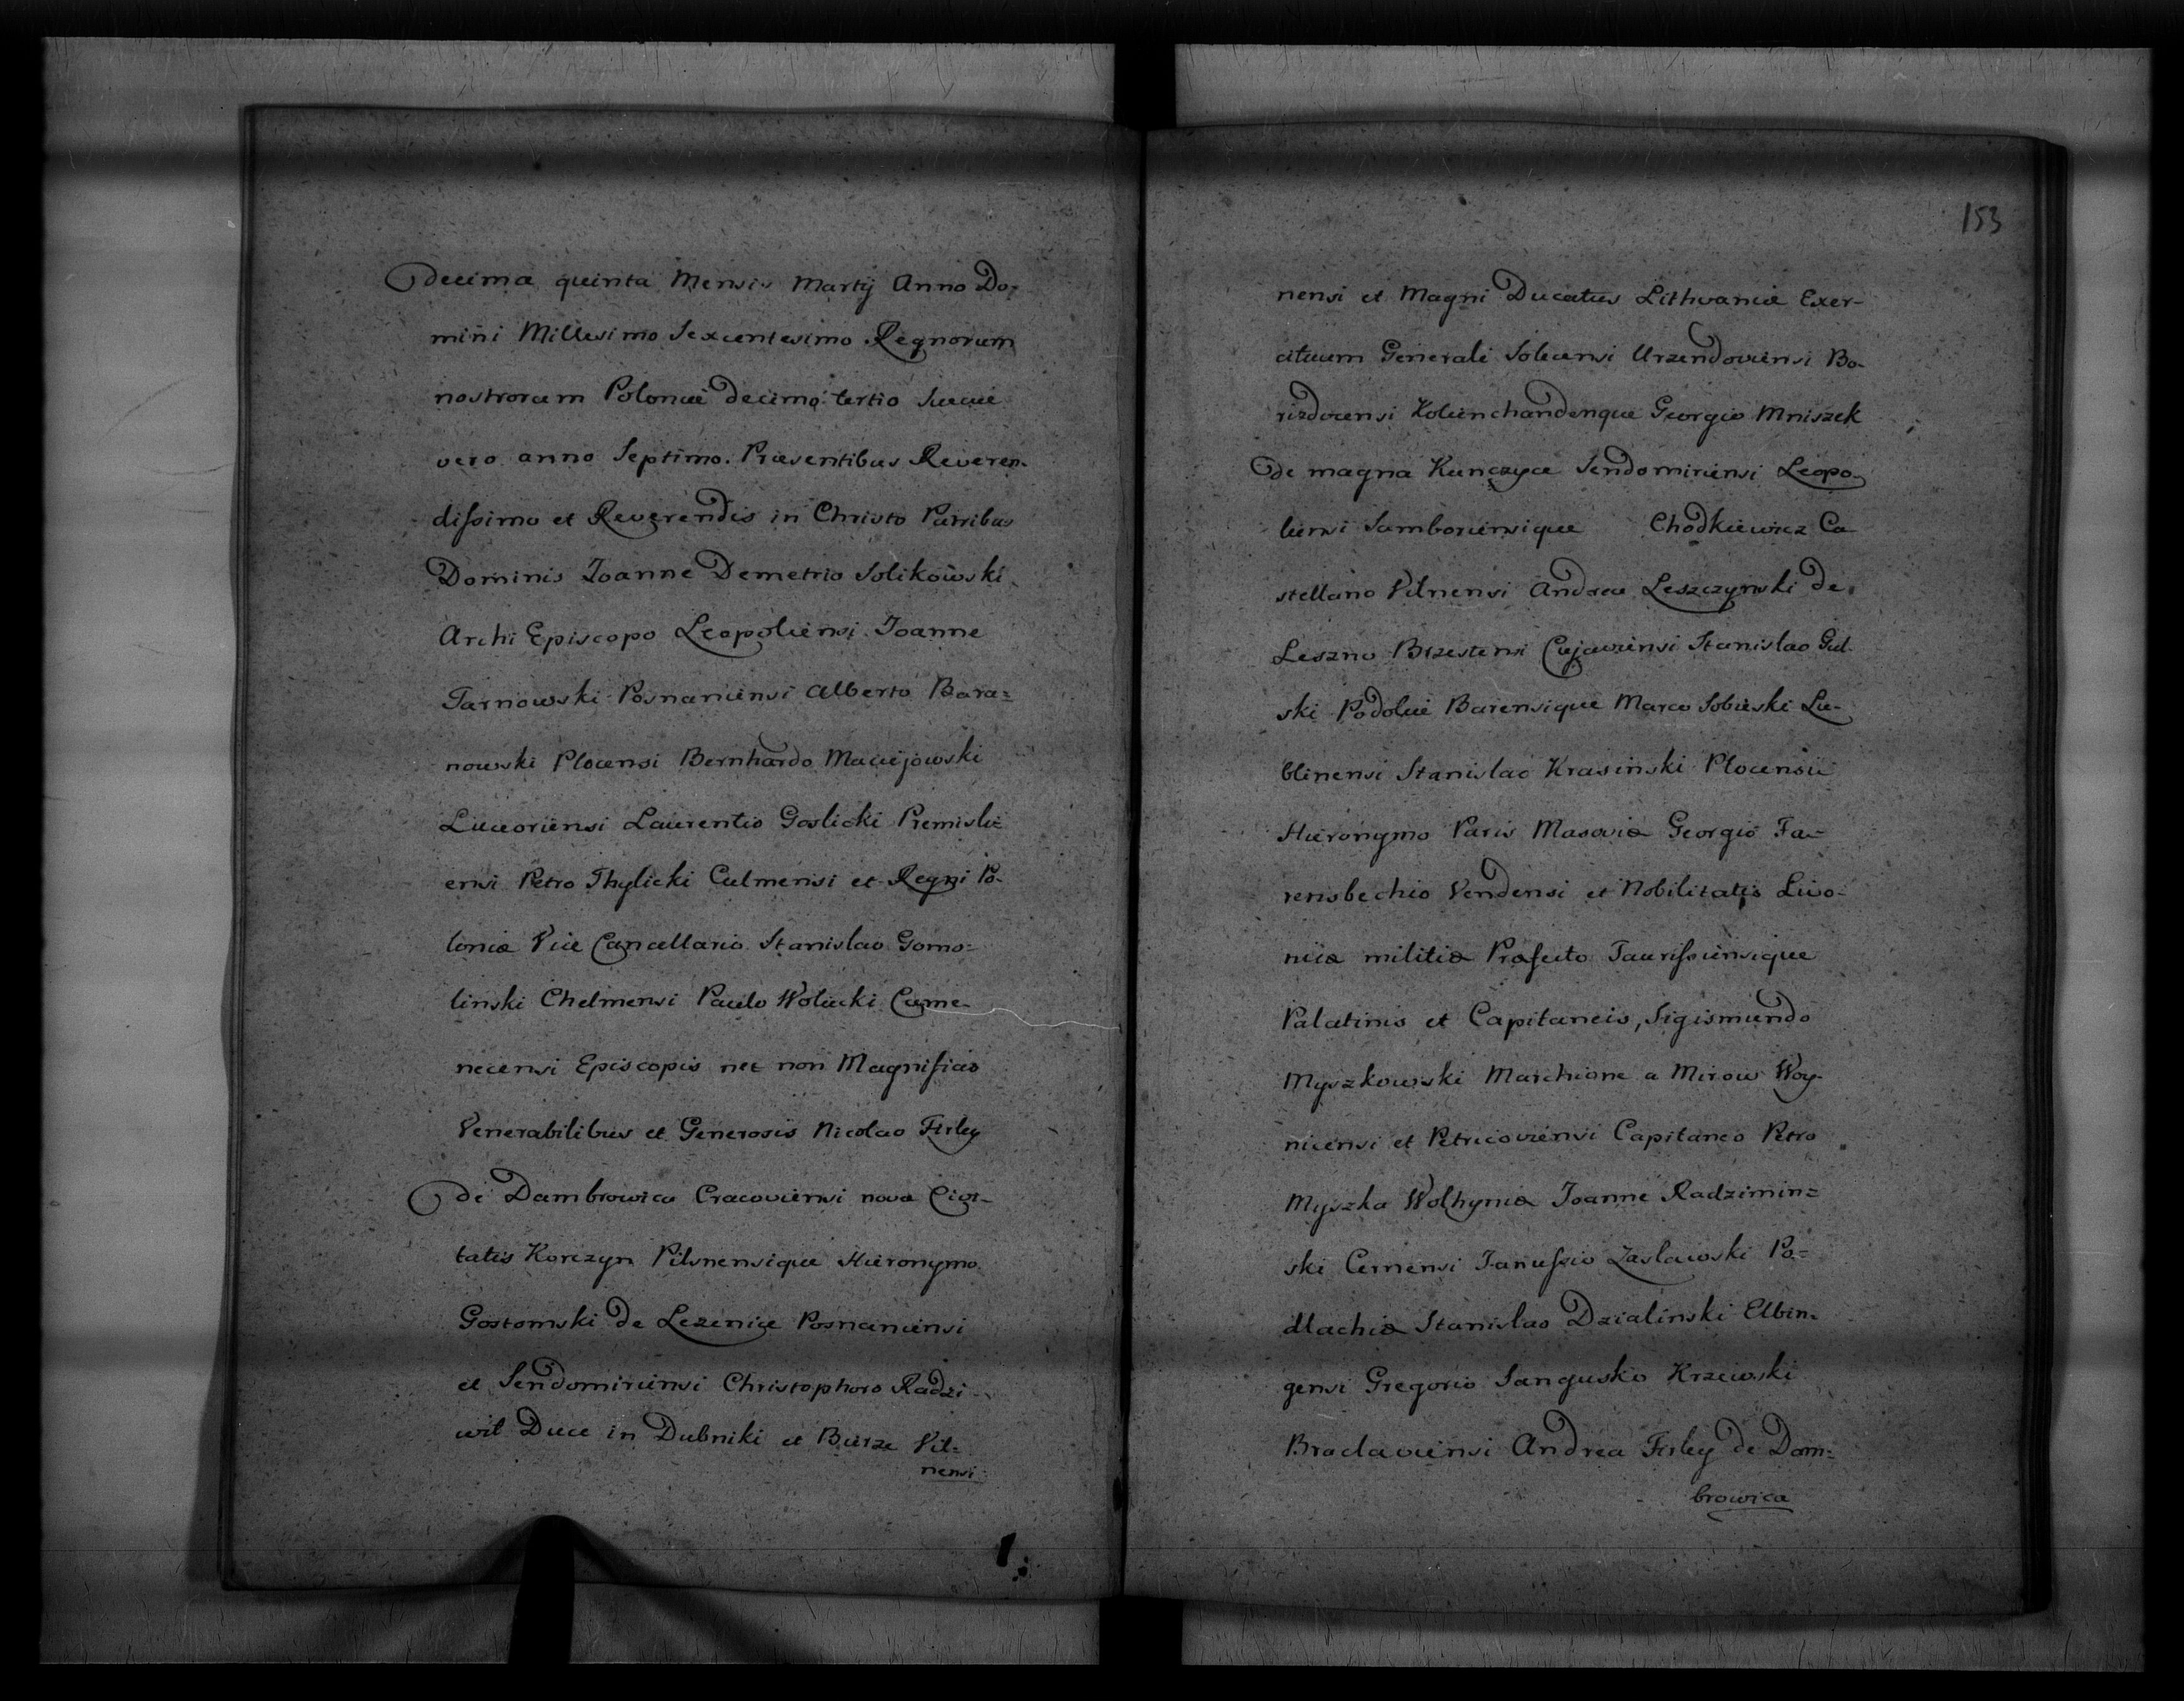 decima quinta Mensis Martij Anno Do-
mini Millesimo Sexcentesimo Regnorum
nostrorum Poloniæ decimo tertio Sueciæ
vero anno Septimo. Præsentibus Reveren-
dissimo et Reverendis in Christo Patribus
Dominis Joanne Demetrio Solikowski
Archi Episcopo Leopoliensi Joanne
Tarnowski Posnaniensi Alberto Bara=
nowski Plocensi Bernhardo Maciejowski
Luceoriensi Laurentio Goslicki Premisli=
ensi Petro Thylicki Culmensi et Regni Po-
loniæ Vice Cancellario Stanislao Gomo=
linski Chelmensi Paulo Wolucki Came-
necensi Episcopis nec non Magnificis
Venerabilibus et Generosis Nicolao Firley
de Dambrowica Cracoviensi novæ Civi-
tatis Korczyn Pilsnensique Hieronymo
Gostomski de Lezenice Posnaniensi
et Sendomiriensi Christophoro Radzi-
wil Duce in Dubniki et Bierze Vil=
nensi
153
nensi et Magni Ducatus Lithvaniæ Exer-
cituum Generali Solecensi Urzendoviensi Bo-
risdocensi Georgio Mniszek
de magna Kunczyce Sendomiriensi Leopo-
liensi Samboriensique Chodkiewicz Ca
stellano Vilnensi Andrea Leszczynski de
Leszno Brzestensi Cujaviensi Stanislao Gul-
ski Podoliæ Barensique Marco Sobieski Lu-
blinensi Stanislao Krasinski Plocensi
Hieronymo Paris Masoviæ Georgio Fa-
rensbechio Vendensi et Nobilitatis Livo-
niæ militiæ Præfecto Taurissiensique
Palatinis et Capitaneis, Sigismundo
Myszkowski Marchione a Mirow Woy-
nicensi et Petricoviensi Capitaneo Petro
Myszka Wolhyniæ Joanne Radzimin=
ski Cernensi Janussio Zaslawski Po=
dlachiæ Stanislao Dzialinski Elbin-
gensi Gregorio Sangusko Krzewski
Braclaviensi Andrea Firley de Dam=
browica